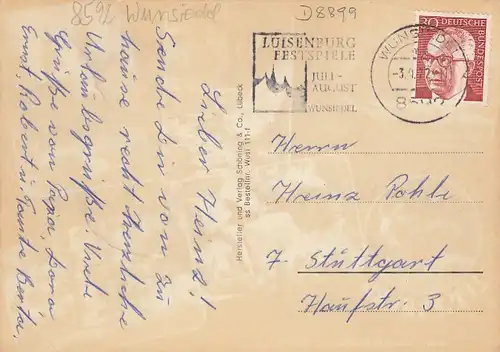 8592 Wunsiedel
D8899
LUISENBURG
FESTSPIELE
JULI-
AUGUST
WUNSIEDEL
WUNSIEDEL
8592
30 DEUTSCHE
BUNDESPOST
Lieber Heinz!
Sende Dir von zu
hause recht herzliche
Urlaubsgrüße. Viele
Grüße von Papa, Dora
Ernst, Robert u. Tante Berta.
Hersteller und Verlag Schöning & Co., Lübeck
Bestellnr. Wusi 111-f
Herrn
Heinz Pohle
7 Stuttgart
Haufstr. 3